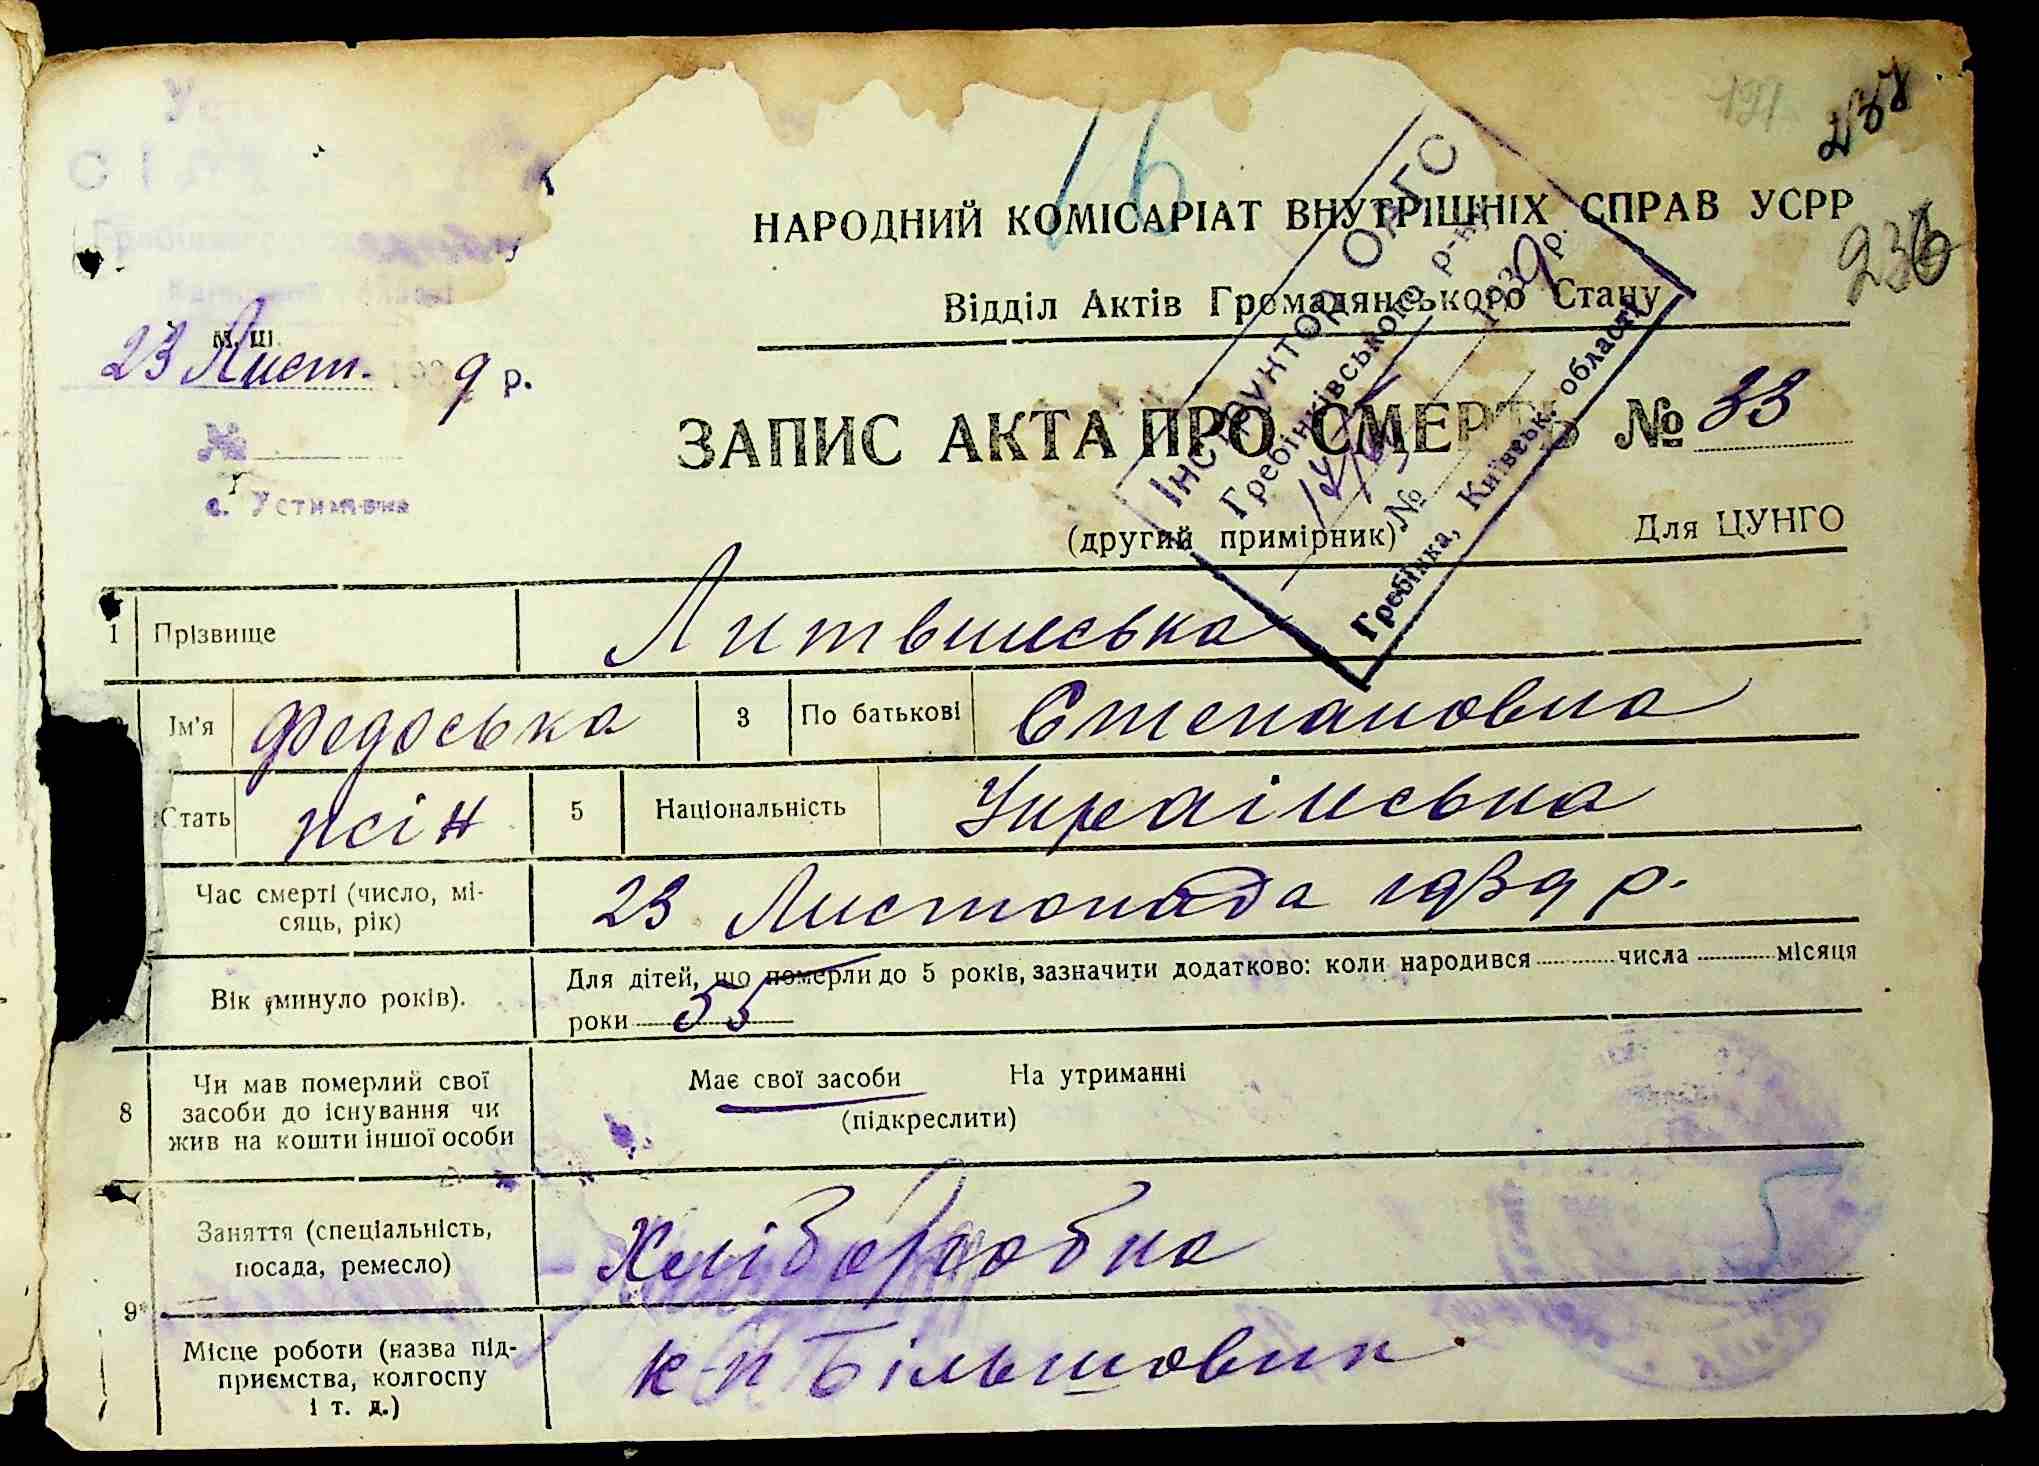 197
238
236
16
НАРОДНИЙ КОМІСАРІАТ ВНУТРІШНІХ СПРАВ УСРР
Відділ Актів Громадянського Стану
ІНСТРУКТОР ОАГС
Гребінківського р-ну
№ 1939 р.
Гребінка, Київськ. області
23 Лист. 1939 р.
№
с. Устимівка
ЗАПИС АКТА ПРО СМЕРТЬ № 33
(другий примірник)
Для ЦУНГО
1 Прізвище Литвинська
Ім'я Федоська 3 По батькові Степановна
Стать жін 5 Національність Українська
Час смерті (число, мі-
сяць, рік)
23 Листопада 1939 р.
Вік (минуло років).
Для дітей, що померли до 5 років, зазначити додатково: коли народився числа місяця
роки 55
8 Чи мав померлий свої
засоби до існування чи
жив на кошти іншої особи
Має свої засоби На утриманні
(підкреслити)
Заняття (спеціальність,
посада, ремесло)
Хліборобка
9
Місце роботи (назва під-
приємства, колгоспу
і т. д.)
к-п Більшовик